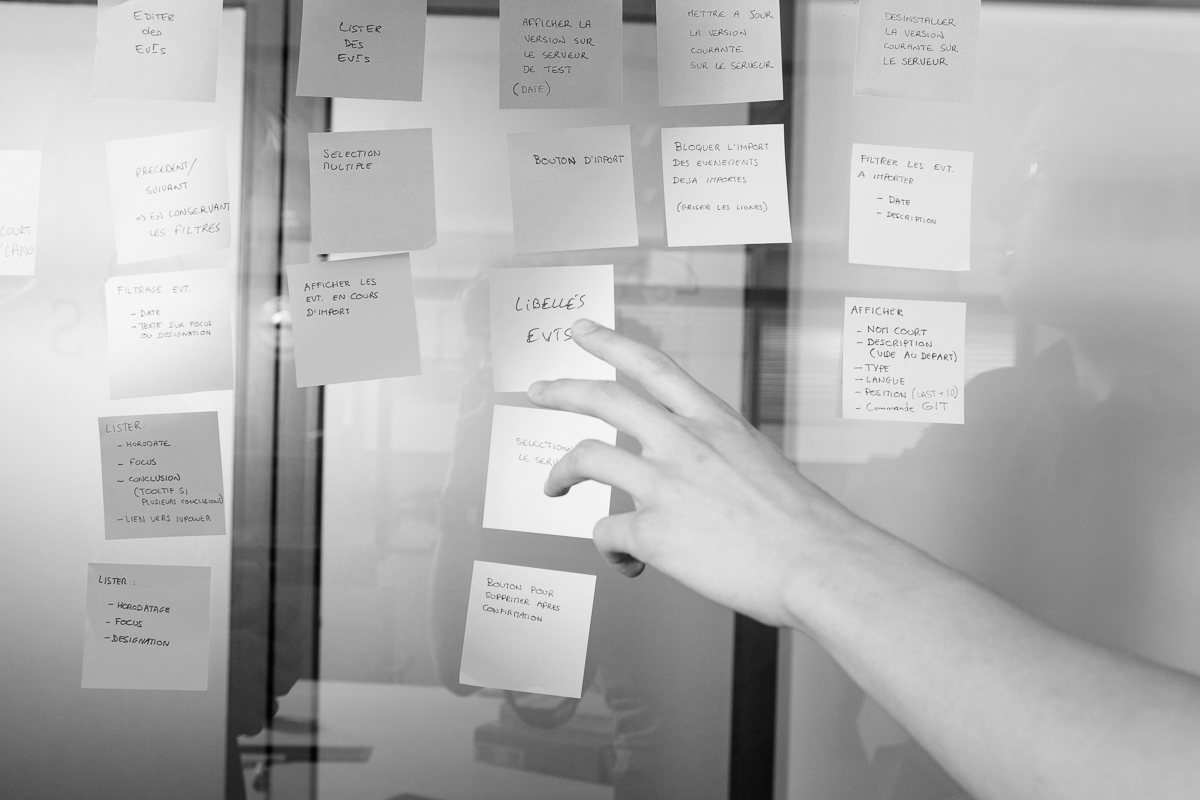 EDITER
des
EVTS
LISTER
DES
EVTS
AFFICHER LA
VERSION SUR
LE SERVEUR
DE TEST
(DATE)
METTRE A JOUR
LA VERSION
COURANTE
SUR LE SERVEUR
DESINSTALLER
LA VERSION
COURANTE SUR
LE SERVEUR
COURT
PRECEDENT/
SUIVANT
=> EN CONSERVANT
LES FILTRES
SELECTION
MULTIPLE
BOUTON D'IMPORT
BLOQUER L'IMPORT
DES EVENEMENTS
DEJA IMPORTES
(GRISER LES LIGNES)
FILTRER LES EVT.
A IMPORTER
- DATE
- DESCRIPTION
FILTRAGE EVT.
- DATE
- TEXTE SUR FOCUS
OU DESIGNATION
AFFICHER LES
EVT. EN COURS
D'IMPORT
LIBELLÉS
EVTS
AFFICHER
- NOM COURT
- DESCRIPTION
(VIDE AU DEPART)
- TYPE
- LANGUE
- POSITION (LAST+10)
- Commande GIT
LISTER
- HORODATE
- FOCUS
- CONCLUSION
(TOOLTIP SI
PLUSIEURS CONCLUSION)
- LIEN VERS
LE
LISTER :
- HORODATAGE
- FOCUS
- DESIGNATION
BOUTON POUR
SUPPRIMER APRES
CONFIRMATION